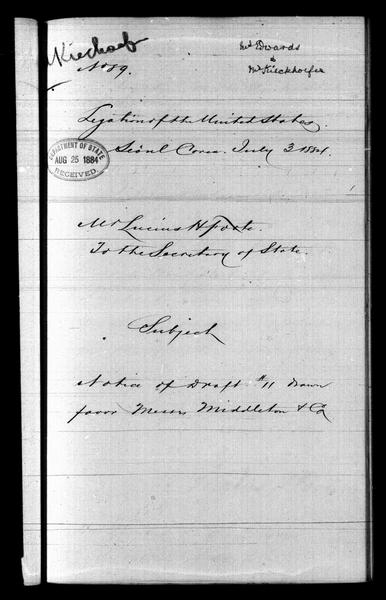 Kiechoef
Mr Edwards
&
Mr Kieckhoefer
No 89.
Legation of the United States
Seoul Corea. July 3 1884.
DEPARTMENT OF STATE
AUG 25 1884
RECEIVED
Mr Lucius H Foote.
To the Secretary of State.
Subject
Notice of Draft #11 drawn
favor Messrs Middleton & Co